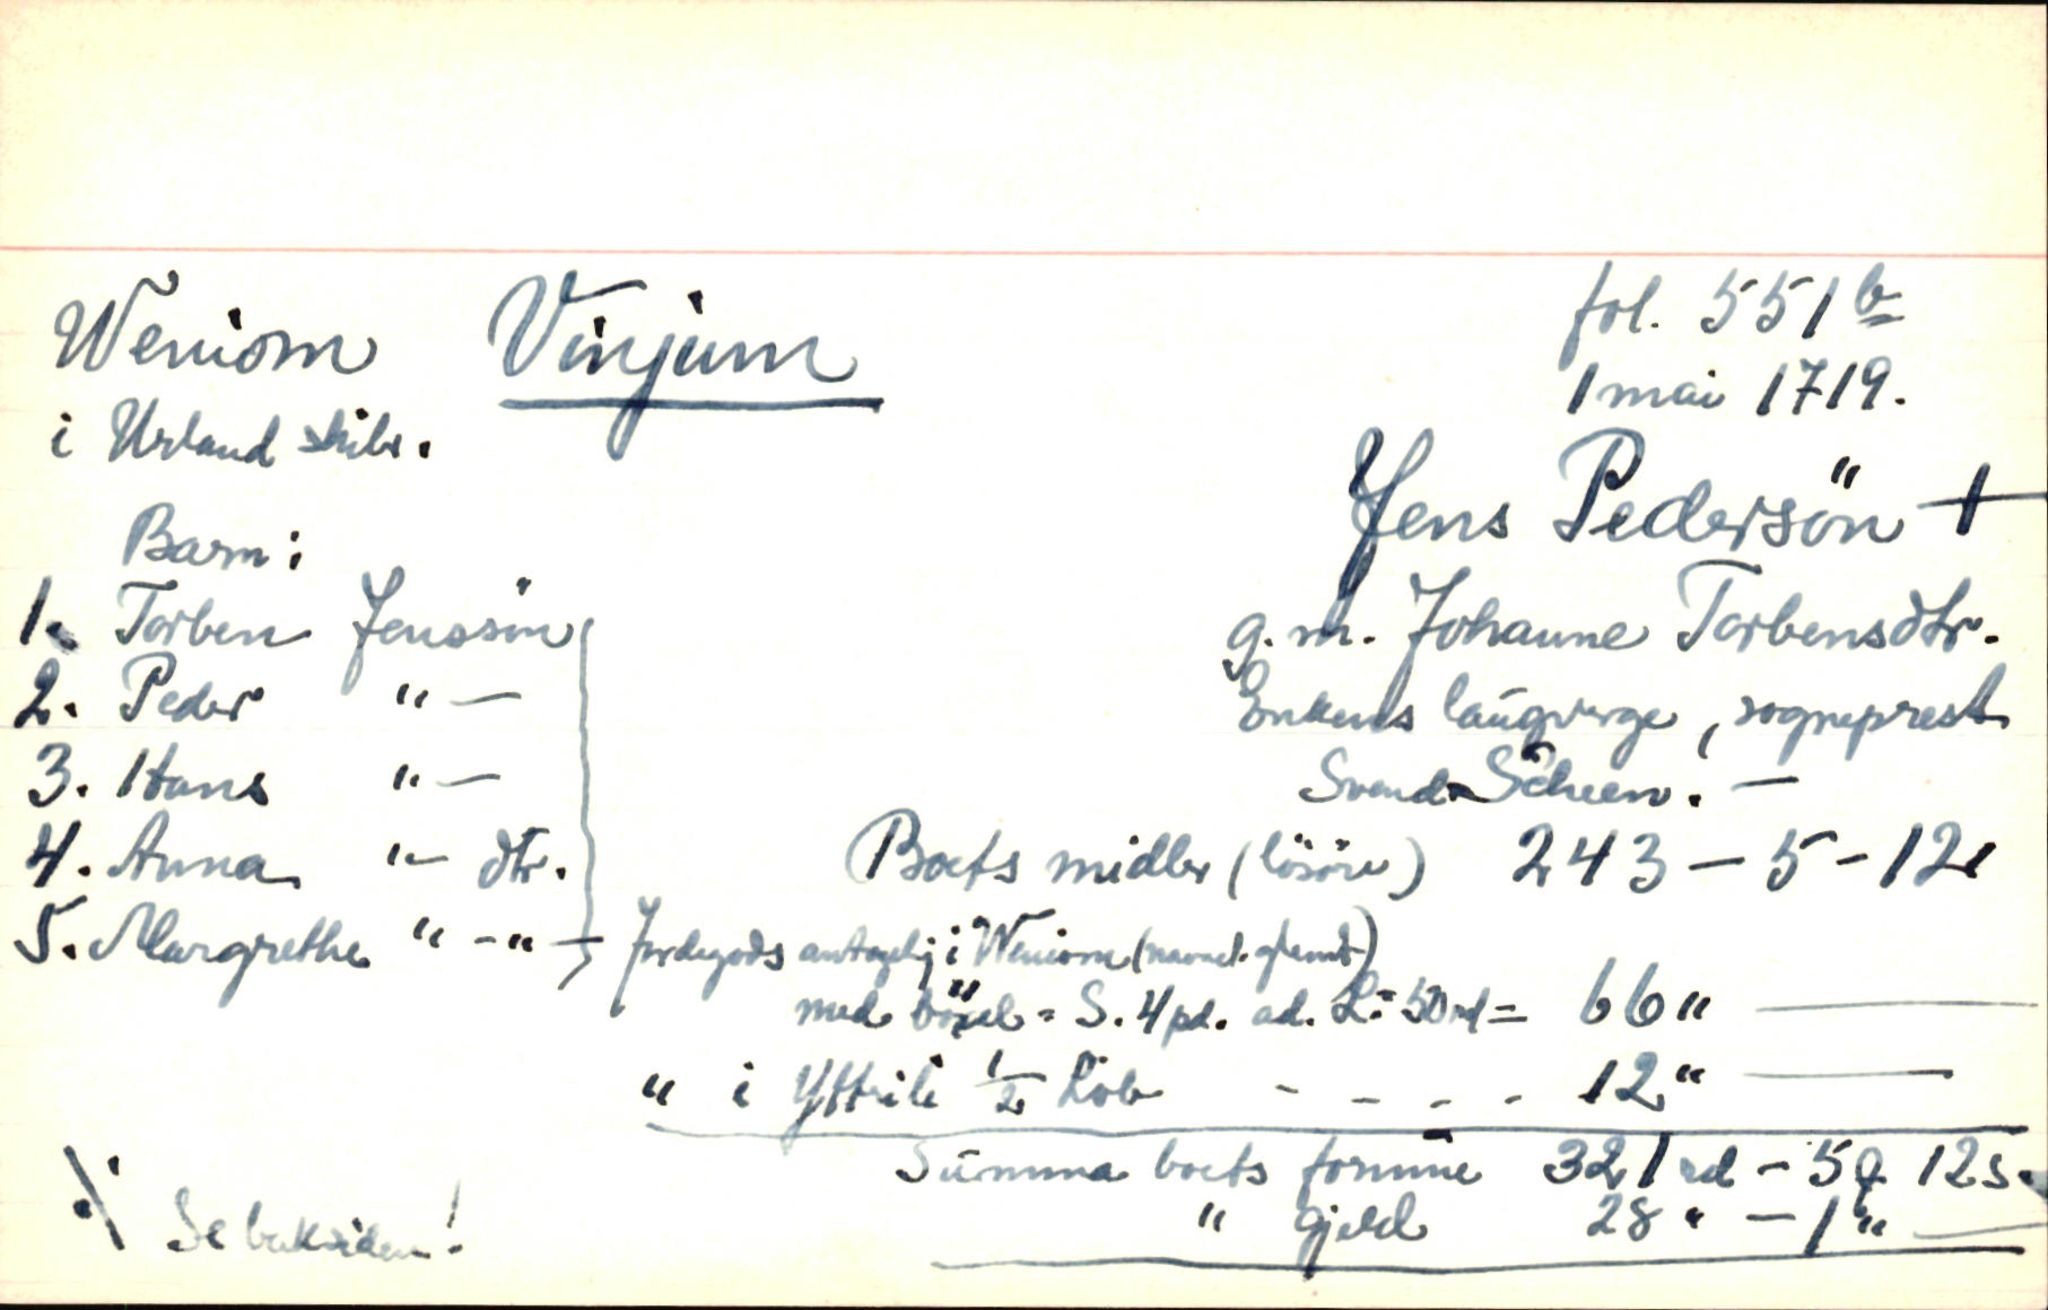 Weniom Vinjum
fol. 551 b
1 mai 1719.
i Urland skibr.
Jens Pedersön +
g. m. Johanne Torbensdtr.
Enkens laugverge, sogneprest
Svend Scheen. —
Barn:
1. Torben Jenssön
2. Peder " —
3. Hans " —
4. Anna " — dtr.
5. Margrethe " - " —
Boets midler (lösöre) 243 — 5 - 12.
Jordegods antagelj i Weniom (navnet glemt)
med böxel = S. 4 pd. ad. L = 50 rd = 66 " —
" i Yttrili 1/2 Löb - - - - 12 " —
Summa boets formue 321 rd - 5 q 12 s.
" gjeld 28 " — 1 " —
·/· Se baksiden!